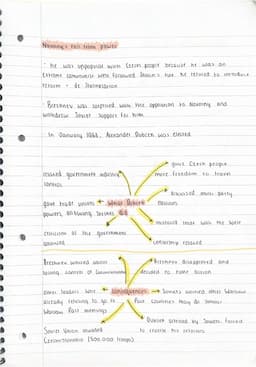 Novotny's fall from power
· he was unpopular with Czech people because he was an
extreme communist who followed Stalin's rule. He refused to introduce
reform - de Stalinisation
· Brezhnev was surprised with the opposition to Novotny and
withdrew Soviet support for him
In January 1968, Alexander Dubcek was elected
relaxed government
control
gave Czech people
more freedom to travel
gave trade unions
powers, allowing
What Dubcek
did
discussed multi-party
elections
criticism of the government
allowed
censorship relaxed
Brezhnev worried about
losing control of Czechoslovakia
Brezhnev disapproved and
decided to take action
other leaders were
already refusing to go to
Warsaw Pact meetings
Consequences
Soviets worried other Warsaw
Pact countries may do similar
Soviet Union invaded
Czechoslovakia (500,000 troops)
Dubcek arrested by Soviets, forced
to reverse his reforms